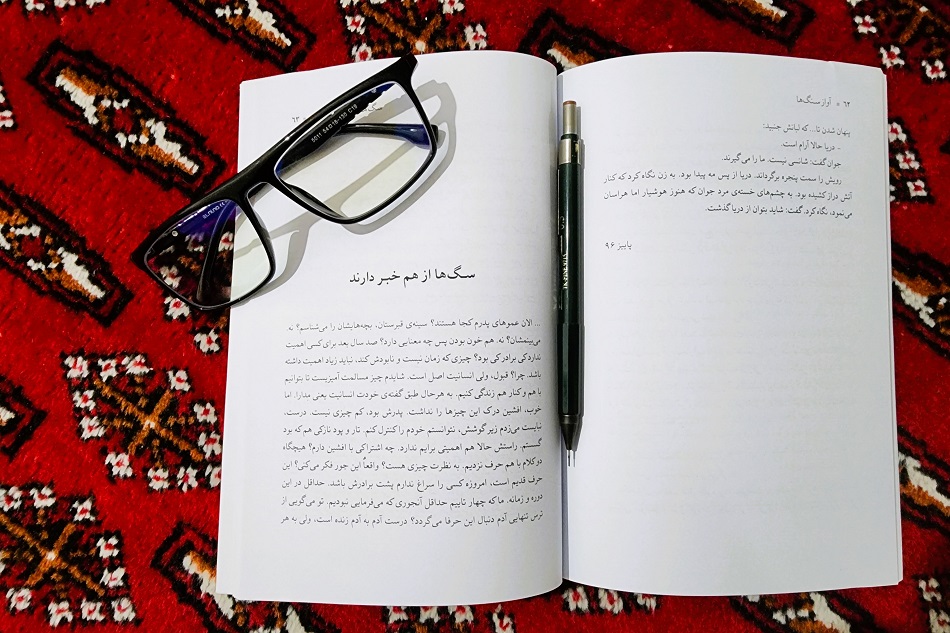 ۶۲ * آوار سنگ‌ها
پنهان شدن تا... که لبانش جنبید:
- دریا حالا آرام است.
جوان گفت: شانسی نیست. ما را می‌گیرند.
رویش را سمت پنجره برگرداند. دریا از پس مه پیدا بود. به زن نگاه کرد که کنار
آتش دراز کشیده بود. به چشم‌های خسته‌ی مرد جوان که هنوز هوشیار اما هراسان
می‌نمود، نگاه کرد. گفت: شاید بتوان از دریا گذشت.
پاییز ۹۶
۶۳
سگ‌ها از هم خبر دارند
... الان عموهای پدرم کجا هستند؟ سینه‌ی قبرستان. بچه‌هایشان را می‌شناسم؟ نه.
می‌بینمشان؟ نه. هم خون بودن پس چه معنایی دارد؟ صد سال بعد برای کسی اهمیت
ندارد کی برادر کی بود؟ چیزی که زمان نیست و نابودش کند، نباید زیاد اهمیت داشته
باشد. چرا؟ قبول، ولی انسانیت اصل است. شایدم چیز مسالمت آمیزیست تا بتوانیم
با هم و کنار هم زندگی کنیم. به هر حال طبق گفته‌ی خودت انسانیت یعنی مدارا. اما
خوب، افشین درک این چیزها را نداشت. پدرش بود، کم چیزی نیست. درست،
نبایست می‌زدم زیر گوشش، نتوانستم خودم را کنترل کنم. تار و پود نازکی هم که بود
گسستم. راستش حالا هم اهمیتی برایم ندارد. چه اشتراکی با افشین دارم؟ هیچگاه
دو کلام با هم حرف نزدیم. به نظرت چیزی هست؟ واقعاً این جور فکر می‌کنی؟ این
حرف قدیم است، امروزه کسی را سراغ ندارم پشت برادرش باشد. حداقل در این
دوره و زمانه. ما که چهار تاییم حداقل آنجوری که می‌فرمایی نبودیم. تو می‌گویی از
ترس تنهایی آدم دنبال این حرفا می‌گردد؟ درست آدم به آدم زنده است، ولی به هر
5011 54□18-135 C18